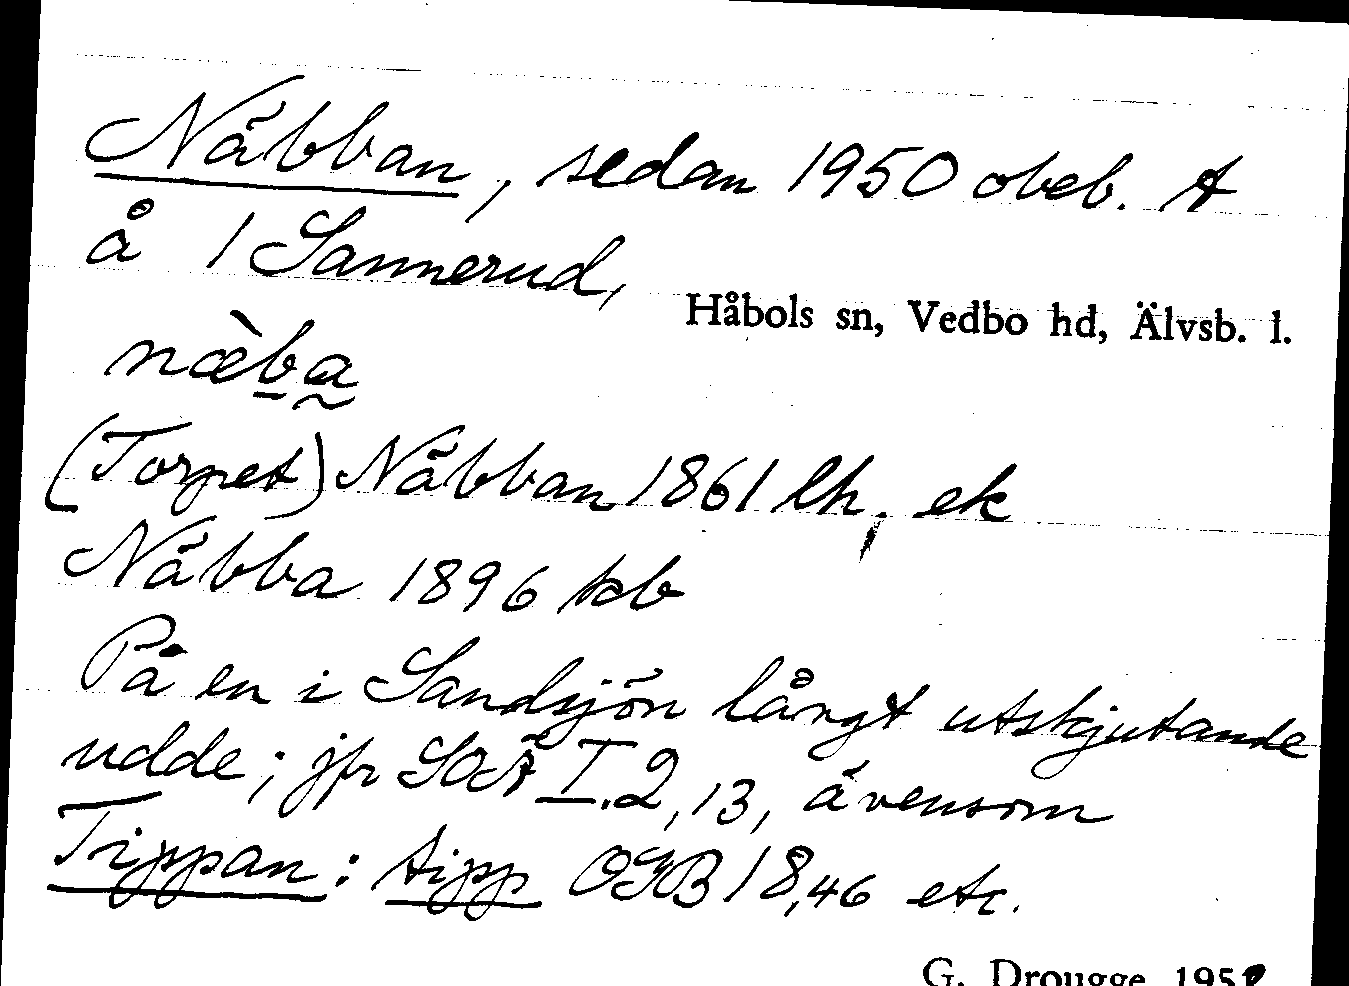 Näbban, sedan 1950 obeb. t
å 1 Sannerud,
Håbols sn, Vedbo hd, Älvsb. l.
næ̀ba
(Torpet) Näbban 1861 lh, ek
Näbba 1896 kb
På en i Sandsjön långt utskjutande
udde; jfr SOÄ I.2,13, ävensom
Tippan: tipp OGB 18,46 etc.
G. Drougge 195